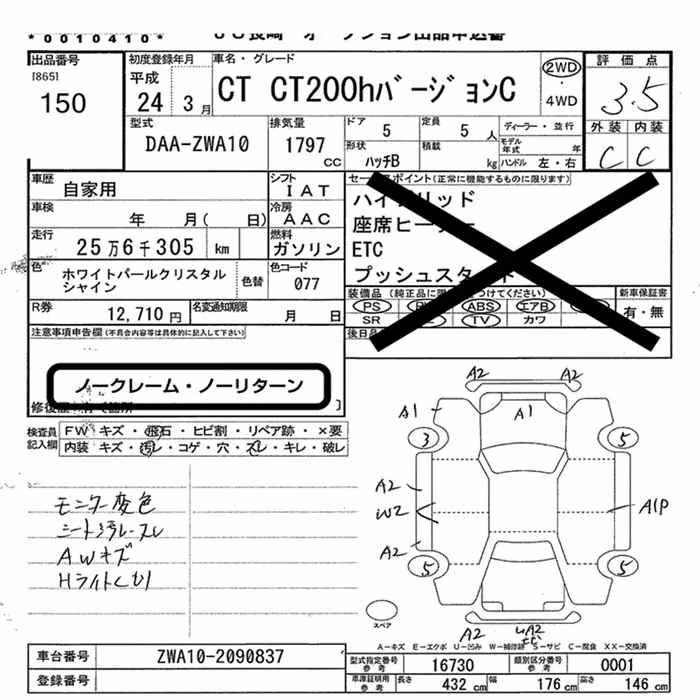 *0010410*
出品番号
[865]
150
初度登録年月
平成
24 3月
車名・グレード
CT CT200hバージョンC
2WD
・
4WD
評価点
3.5
外装 内装
C C
型式
DAA-ZWA10
排気量
1797
CC
ドア
5
定員
5 人
形状
ハッチB
積載
kg
ディーラー・並行
モデル年式 年
ハンドル 左・右
車歴
自家用
シフト
IAT
車検
年 月( 日)
冷房
AAC
走行
25万6千305 km
燃料
ガソリン
色
ホワイトパールクリスタル
シャイン
色替
色コード
077
R券
12,710円
名変通知期限
月 日
セールスポイント(正常に機能するものに限ります)
ハイブリッド
座席ヒーター
ETC
プッシュスタート
装備品
PS
ABS
エアB
SR
TV
カワ
新車保証書
有・無
後日品
注意事項申告欄(不具合内容等は具体的に記入して下さい)
ノークレーム・ノーリターン
検査員
記入欄
FW キズ・飛石・ヒビ割・リペア跡・×要
内装 キズ・汚レ・コゲ・穴・スレ・キレ・破レ
モニター変色
シート汚レスレ
AWキズ
Hライトくもり
A2 A2
A1 A1
3 5
A2
W2
A1P
A2
5 5
スペア
A2
A-キズ E-エクボ U-凹み W-補修跡 S-サビ C-腐食 XX-交換済
車台番号
ZWA10-2090837
登録番号
型式指定番号
参考
16730
類別区分番号
参考
0001
車庫証明用
参考
長さ 432 cm
幅 176 cm
高さ 146 cm